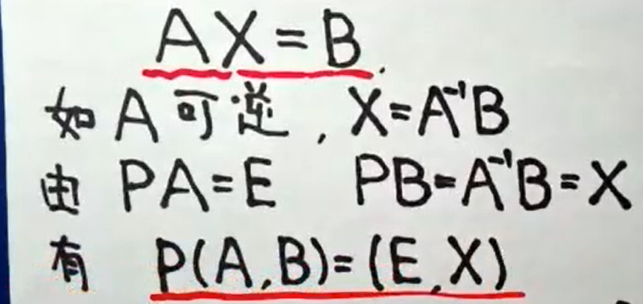 AX=B.
如 A 可逆, X=A⁻¹B
由 PA=E PB=A⁻¹B=X
有 P(A,B)=(E,X)